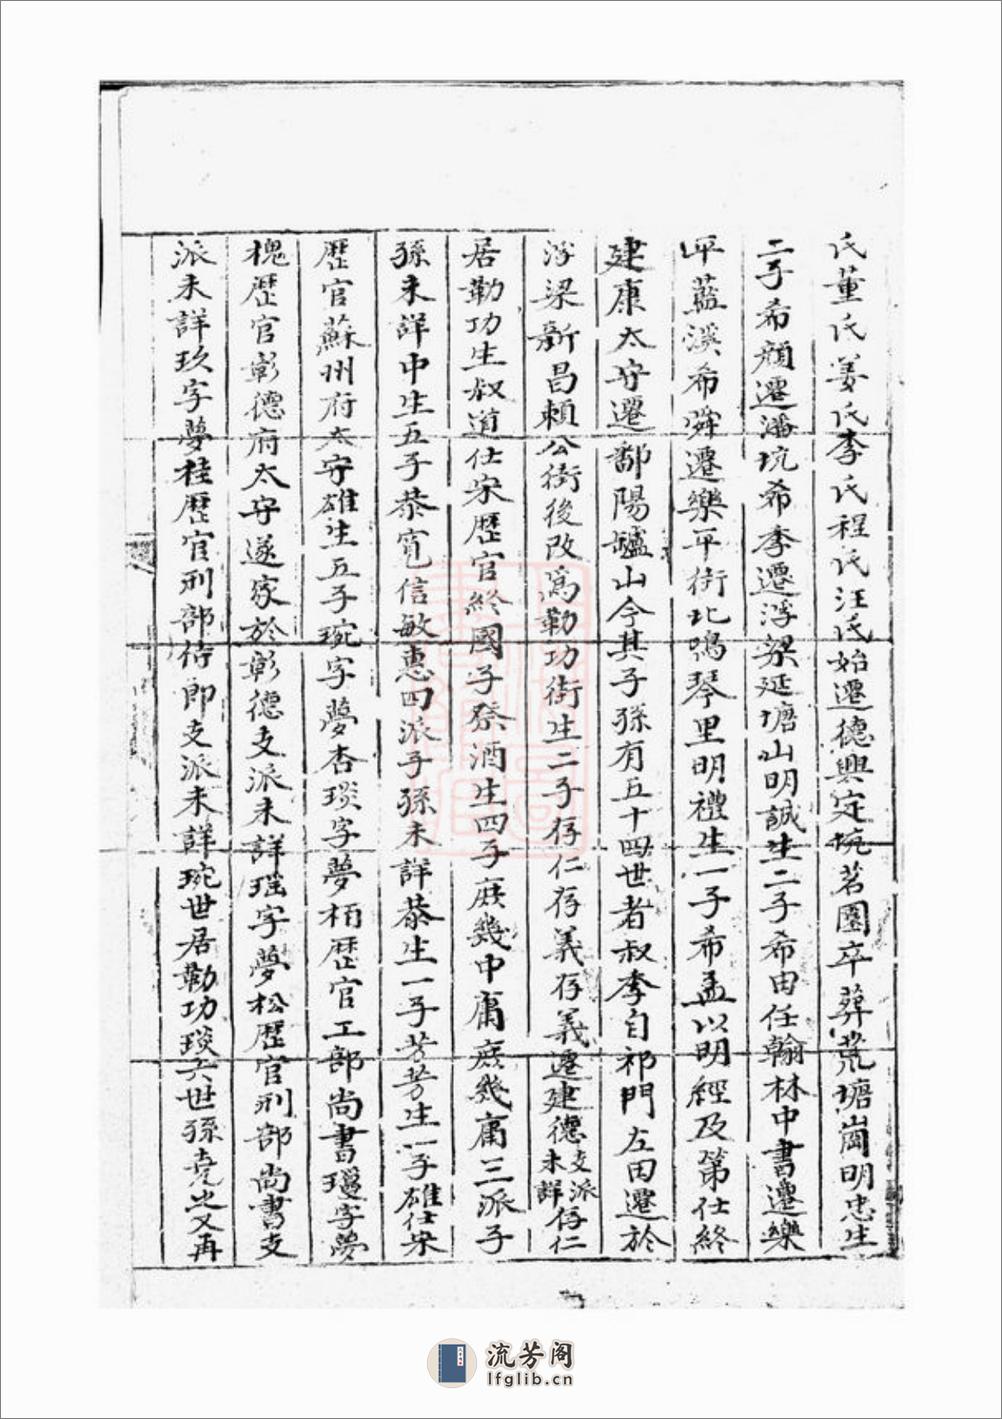 氏董氏姜氏李氏程氏汪氏始遷德興定坑茗園卒葬荒塘崗明忠生
二子希顔遷潘坑希李遷浮梁延塘山明誠生二子希由任翰林中書遷樂
平藍溪希舜遷樂平街北鳴琴里明禮生一子希孟以明經及第仕終
建康太守遷鄱陽墟山今其子孫有五十四世者叔季自祁門左田遷於
浮梁新昌賴公街後改爲勤功街生二子存仁存義存義遷建德支派未詳存仁
居勤功生叔道仕宋歷官終國子祭酒生四子庶幾中庸庶幾庸三派子
孫未詳中生五子恭寬信敏惠四派子孫未詳恭生一子芳芳生一子雄仕宋
歷官蘇州府太守雄生五子琬字夢杏琰字夢柄歷官工部尚書瑾字夢
槐歷官彰德府太守遂家於彰德支派未詳瑶字夢松歷官刑部尚書支
派未詳玖字夢桂歷官刑部侍郎支派未詳琬世居勤功琰六世孫堯叟又再
流芳阁
lfglib.cn